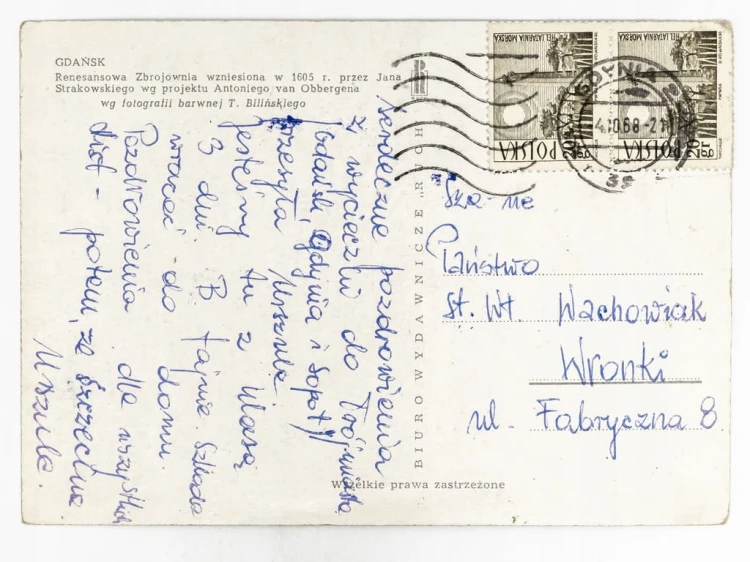 GDAŃSK
Renesansowa Zbrojownia wzniesiona w 1605 r. przez Jana
Strakowskiego wg projektu Antoniego van Obbergena
wg fotografii barwnej T. Bilińskiego
Serdeczne pozdrowienia
z wycieczki do Trójmiasta
(Gdańsk, Gdynia i Sopot)
przesyła Urszula
Jesteśmy tu z klasą
3 dni. B. fajnie. Szkoda
wracać do domu.
Pozdrowienia dla wszystkich
List - potem, ze Szczecina
Urszula.
BIURO WYDAWNICZE "RUCH"
Wszelkie prawa zastrzeżone
HEL LATARNIA MORSKA
POLSKA
20 gr
HEL LATARNIA MORSKA
POLSKA
20 gr
GDYNIA
4.10.68-21
Państwo
St. Wł. Wachowiak
Wronki
ul. Fabryczna 8.